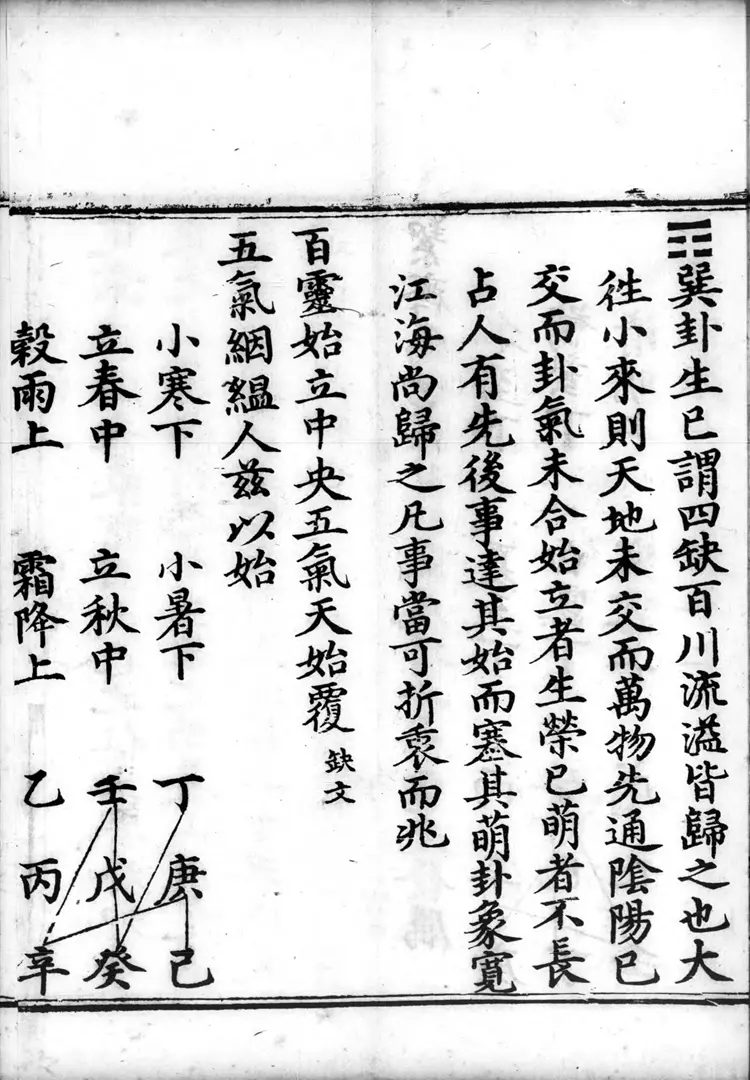 ☴巽卦生已謂四缺百川流溢皆歸之也大
徃小來則天地未交而萬物先通陰陽已
交而卦氣未合始立者生榮已萌者不長
占人有先後事達其始而塞其萌卦象寛
江海尚歸之凡事當可折衷而兆
百靈始立中央五氣天始覆 缺文
五氣絪縕人兹以始
小寒下 小暑下 丁庚己
立春中 立秋中 壬戊癸
穀雨上 霜降上 乙丙辛